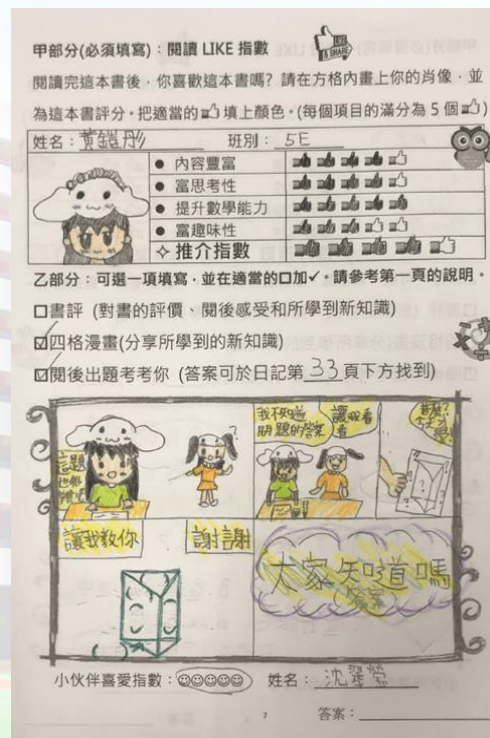 甲部分(必須填寫)：閱讀 LIKE 指數
LIKE
& SHARE
閱讀完這本書後，你喜歡這本書嗎? 請在方格內畫上你的肖像，並
為這本書評分，把適當的👍填上顏色。(每個項目的滿分為 5 個👍)
姓名：黃鎧彤 班別：5E
● 內容豐富
● 富思考性
● 提升數學能力
● 富趣味性
✧ 推介指數
乙部分：可選一項填寫，並在適當的口加✓，請參考第一頁的說明。
口書評 (對書的評價、閱後感受和所學到新知識)
四格漫畫(分享所學到的新知識)
閱後出題考考你 (答案可於日記第 33 頁下方找到)
這題
我不知道
問題的答案
讓我看
看
讓我教你
謝謝
大家知道嗎
答案
小伙伴喜愛指數：☺☺☺☺☺ 姓名：沈翠瑩
7
答案：